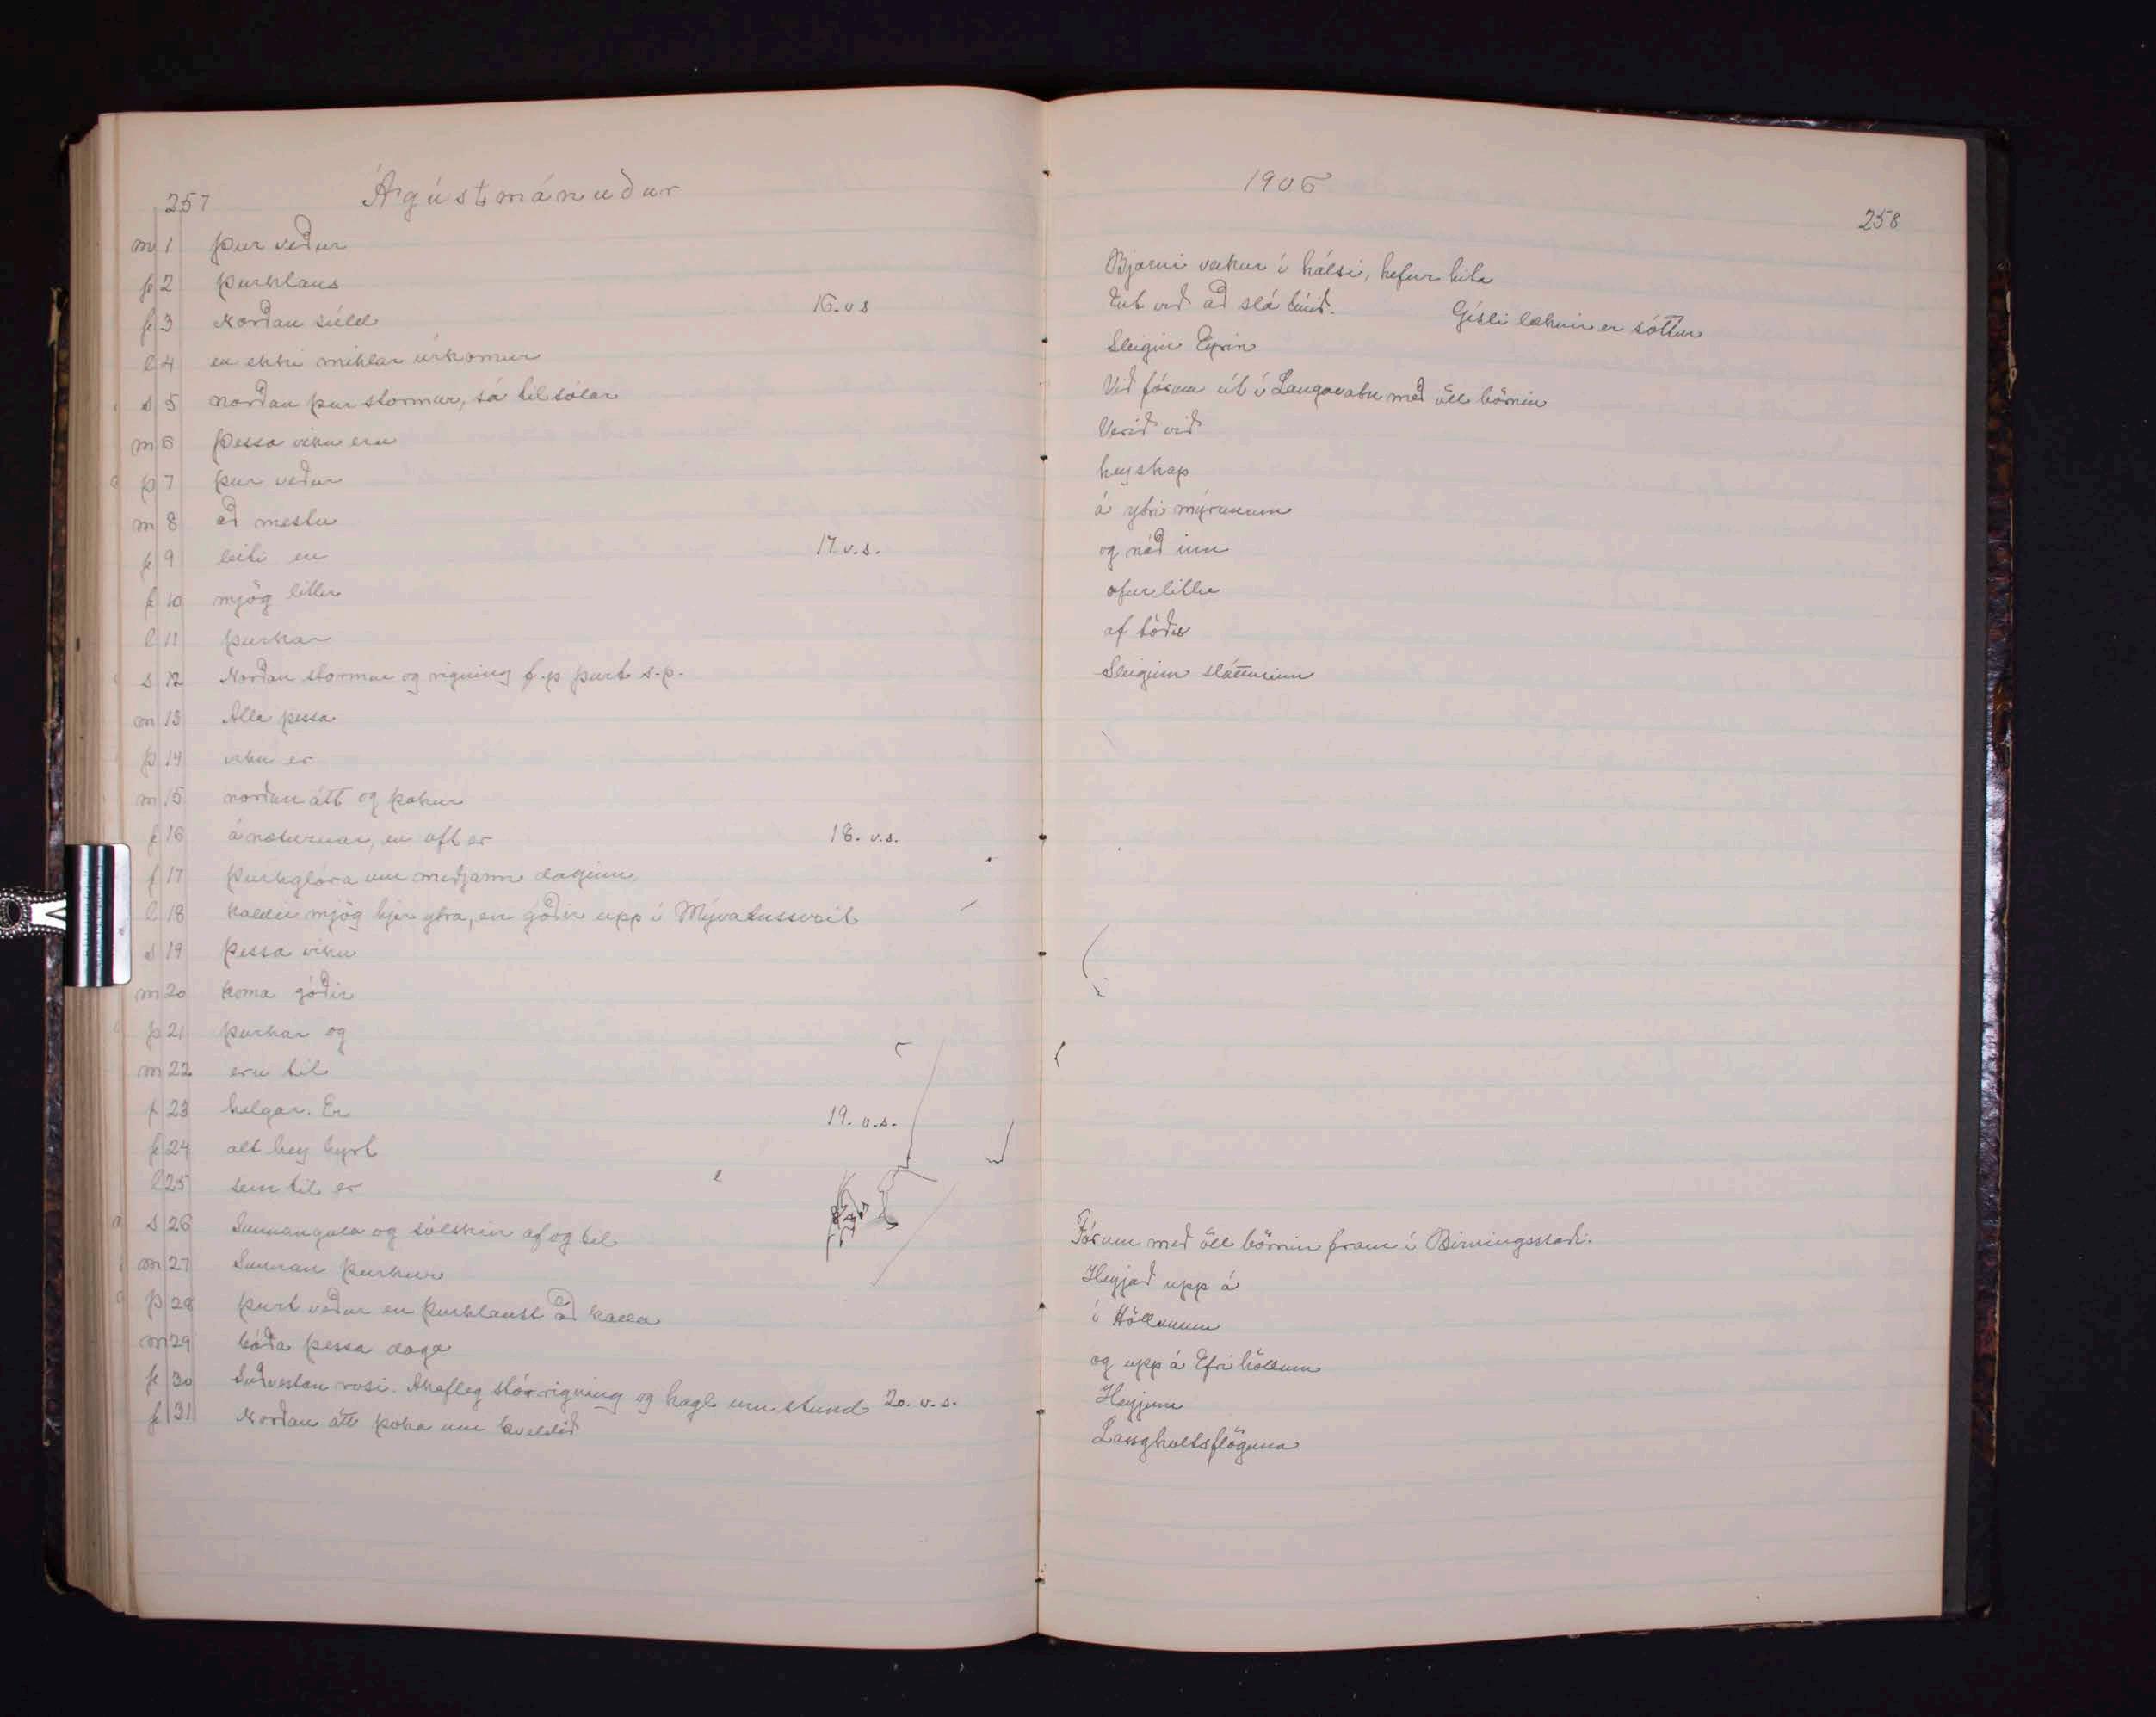 257 Ágústmánuður
m 1 þur veður
f 2 þurklaus
f 3 Norðan súld 16. v s
l 4 en ekki miklar úrkomur
s 5 norðan þur stormur, sá til sólar
m 6 þessa viku eru
þ 7 þur veður
m 8 að mestu
f 9 leiti en 17. v. s.
f 10 mjög litlir
l 11 þurkar
s 12 Norðan stormur og rigning f.p þurt s.p.
m 13 Alla þessa
þ 14 viku er
m 15 norðan átt og þokur
f 16 á næturnar, en oft er 18. v.s.
f 17 þurkglóra um miðjann daginn
l 18 kaldir mjög hjer ytra, en góðir upp í Mývatnssveit
s 19 þessa viku
m 20 koma góðir
þ 21 þurkar og
m 22 eru til
f 23 helgar. Er 19. v.s.
f 24 alt hey hyrt
l 25 sem til er
s 26 Sunnangola og sólskin af og til
m 27 Sunnan þurkur
þ 28 þurt veður en þurklaust að kalla
m 29 báða þessa daga
f 30 Suðvestan rosi. Ákafleg stórrigning og hagl um stund 20. v.s.
f 31 Norðan átt þoka um kveldið
1906
258
Bjarni veikur í hálsi, hefur hita
Lut við að slá túnið. Gísli læknir er sóttur
Slegin Eyrin
Við fórum út í Langavatn með öll börnin
Verið við
heyskap
á ytri mýrunum
og náð inn
ofurlitlu
af töðu
Sleginn slátturinn
Fórum með öll börnin fram í Birningsstaði.
Heyjað upp á
í Höllunum
og upp á Efri höllum
Heyjum
Langholtsflöguna